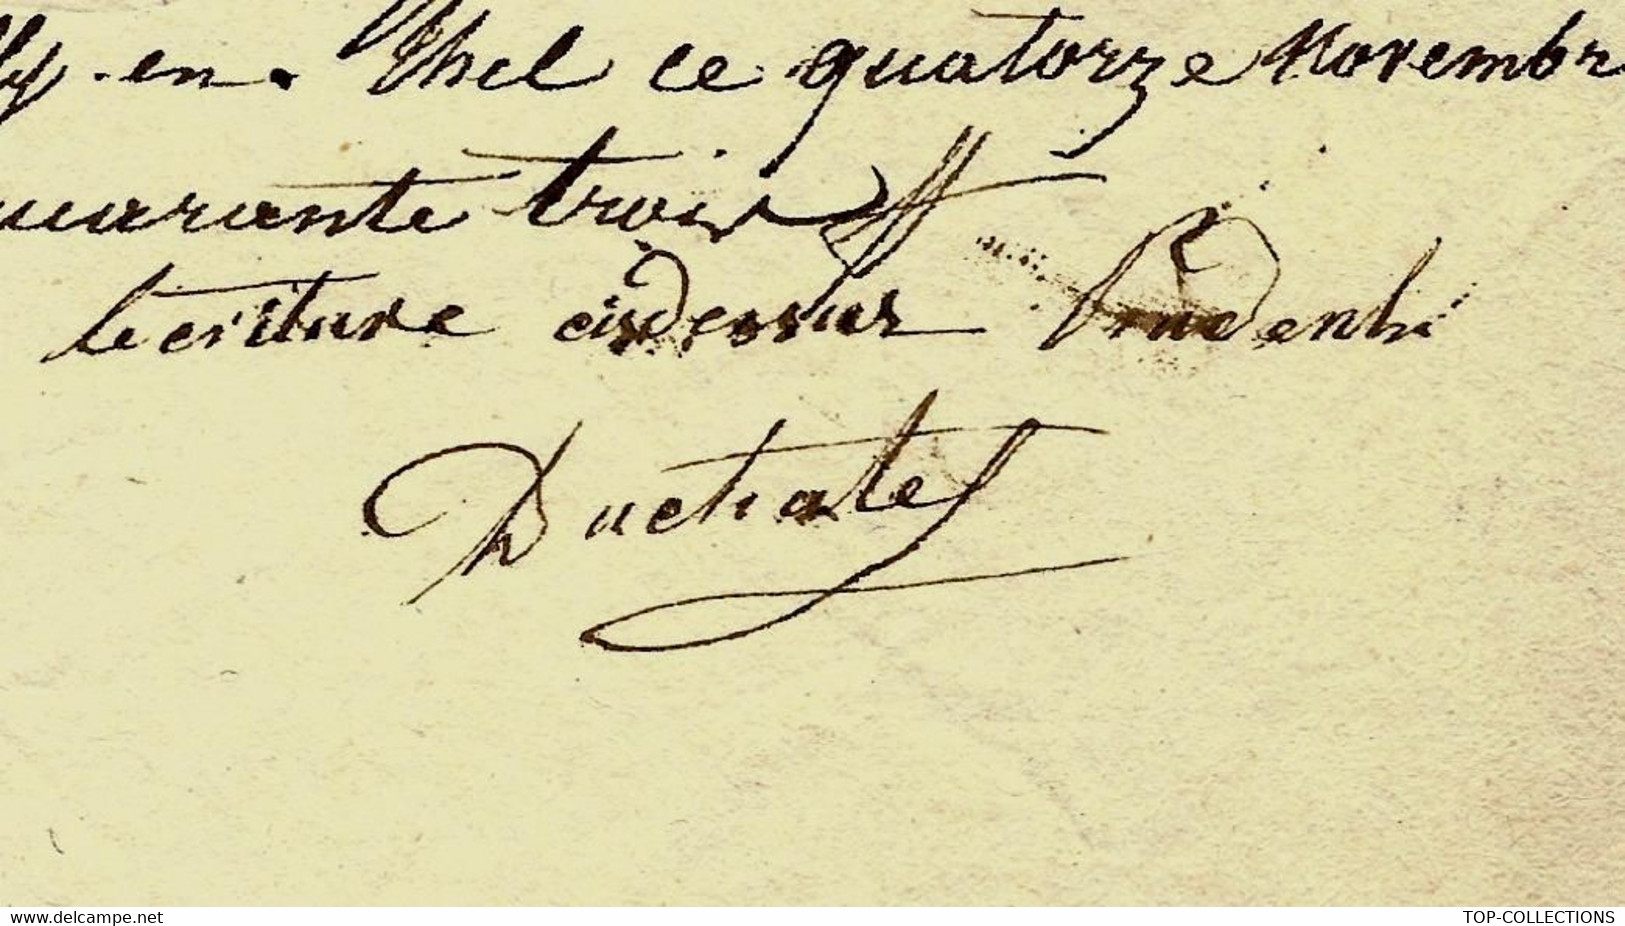 lly . en . Thel ce quatorze Novembr
uarante trois
lecriture cidessus
Duchatel
www.delcampe.net
TOP-COLLECTIONS